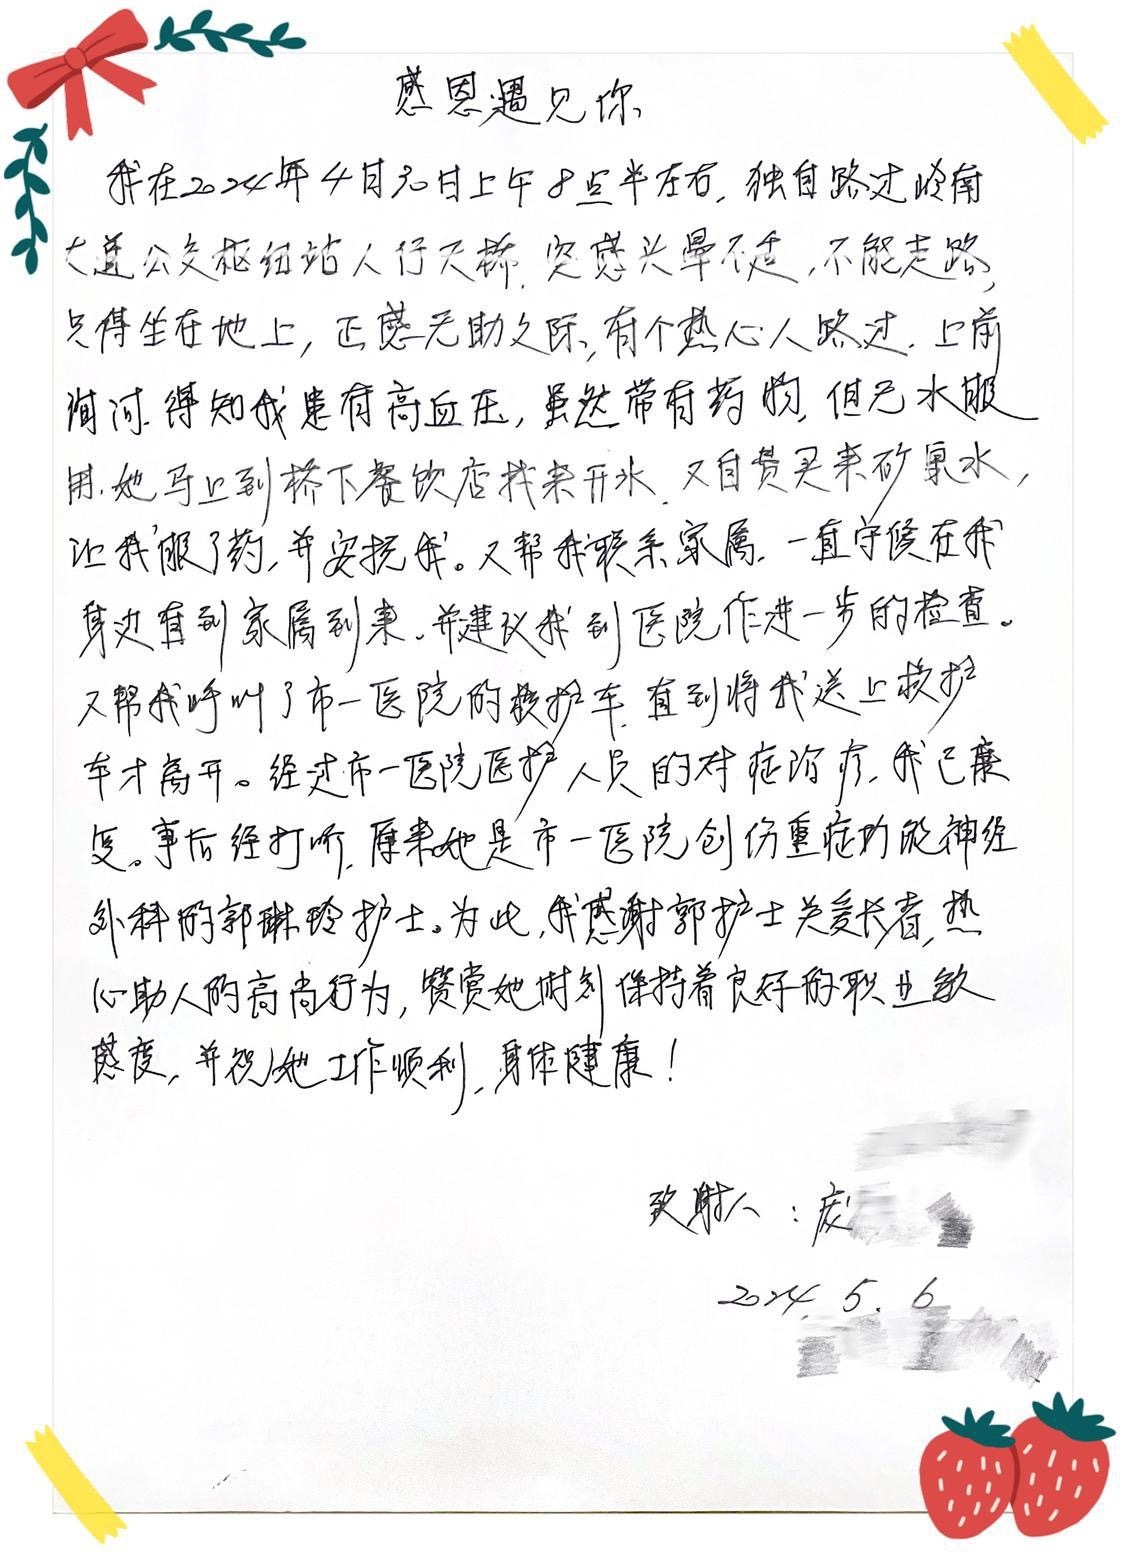 感恩遇见你
我在2024年4月30日上午8点半左右,独自路过岭南
大道公交枢纽站人行天桥,突感头晕不适,不能走路,
只得坐在地上,正感无助之际,有个热心人路过,上前
询问,得知我患有高血压,虽然带有药物,但无水服
用,她马上到桥下餐饮店找来开水,又自费买来矿泉水,
让我服了药,并安抚我。又帮我联系家属,一直守候在我
身边直到家属到来。并建议我到医院作进一步的检查。
又帮我呼叫了市一医院的救护车,直到将我送上救护
车才离开。经过市一医院医护人员的对症治疗,我已康
复。事后经打听,原来她是市一医院创伤重症功能神经
外科的郭琳玲护士。为此,我感谢郭护士关爱长者,热
心助人的高尚行为,赞赏她时刻保持着良好的职业敏
感度,并祝她工作顺利,身体健康!
致谢人:
2024.5.6